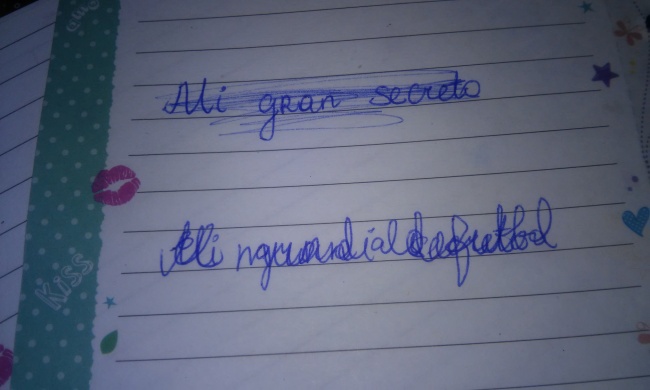 Mi gran secreto
Mi mundial de futbol
Kiss